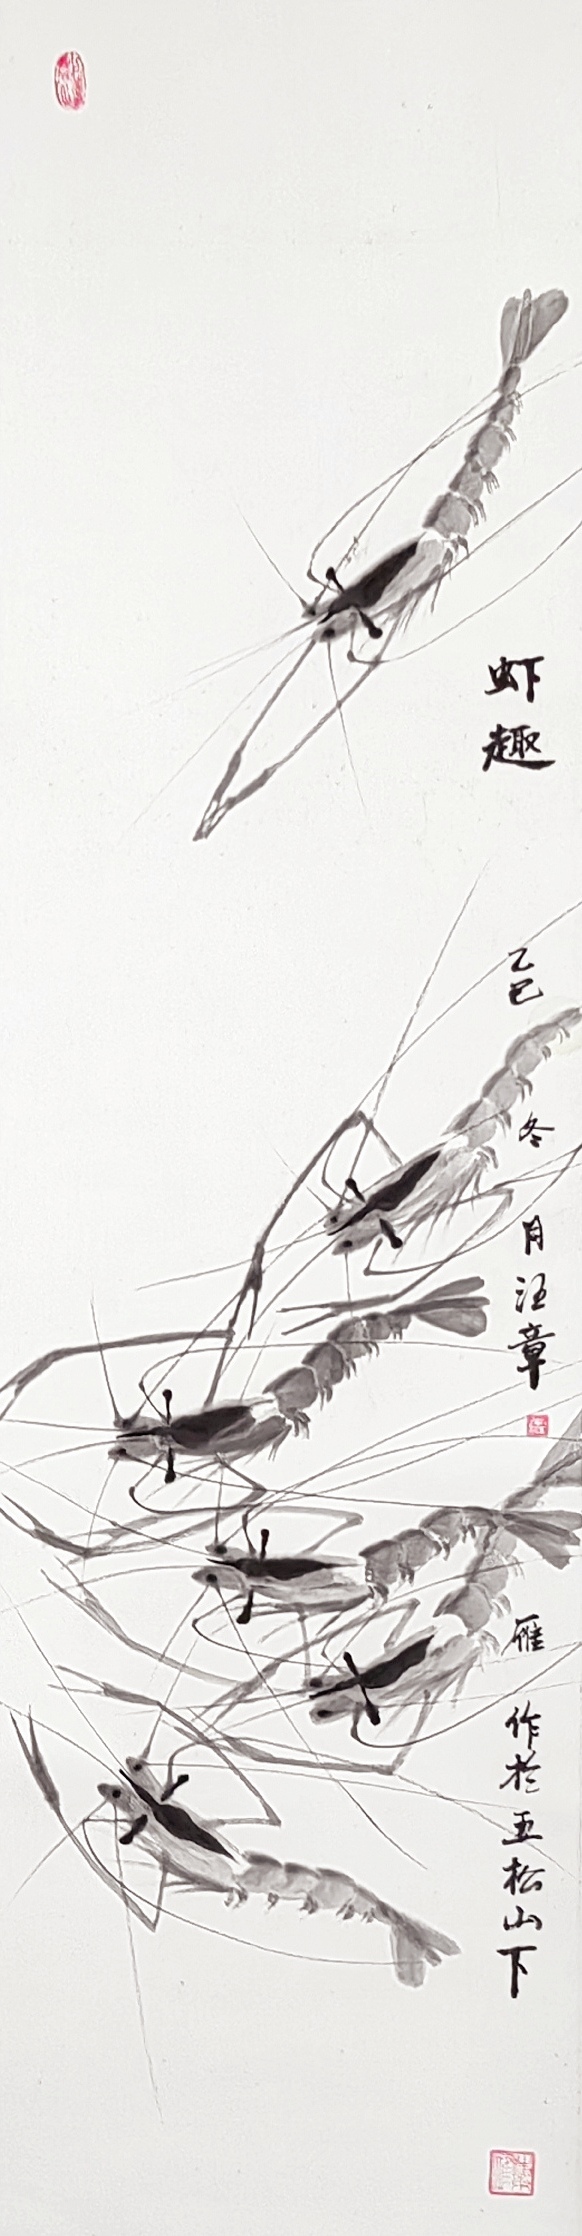 虾趣
乙巳冬月汪章雁作于五松山下